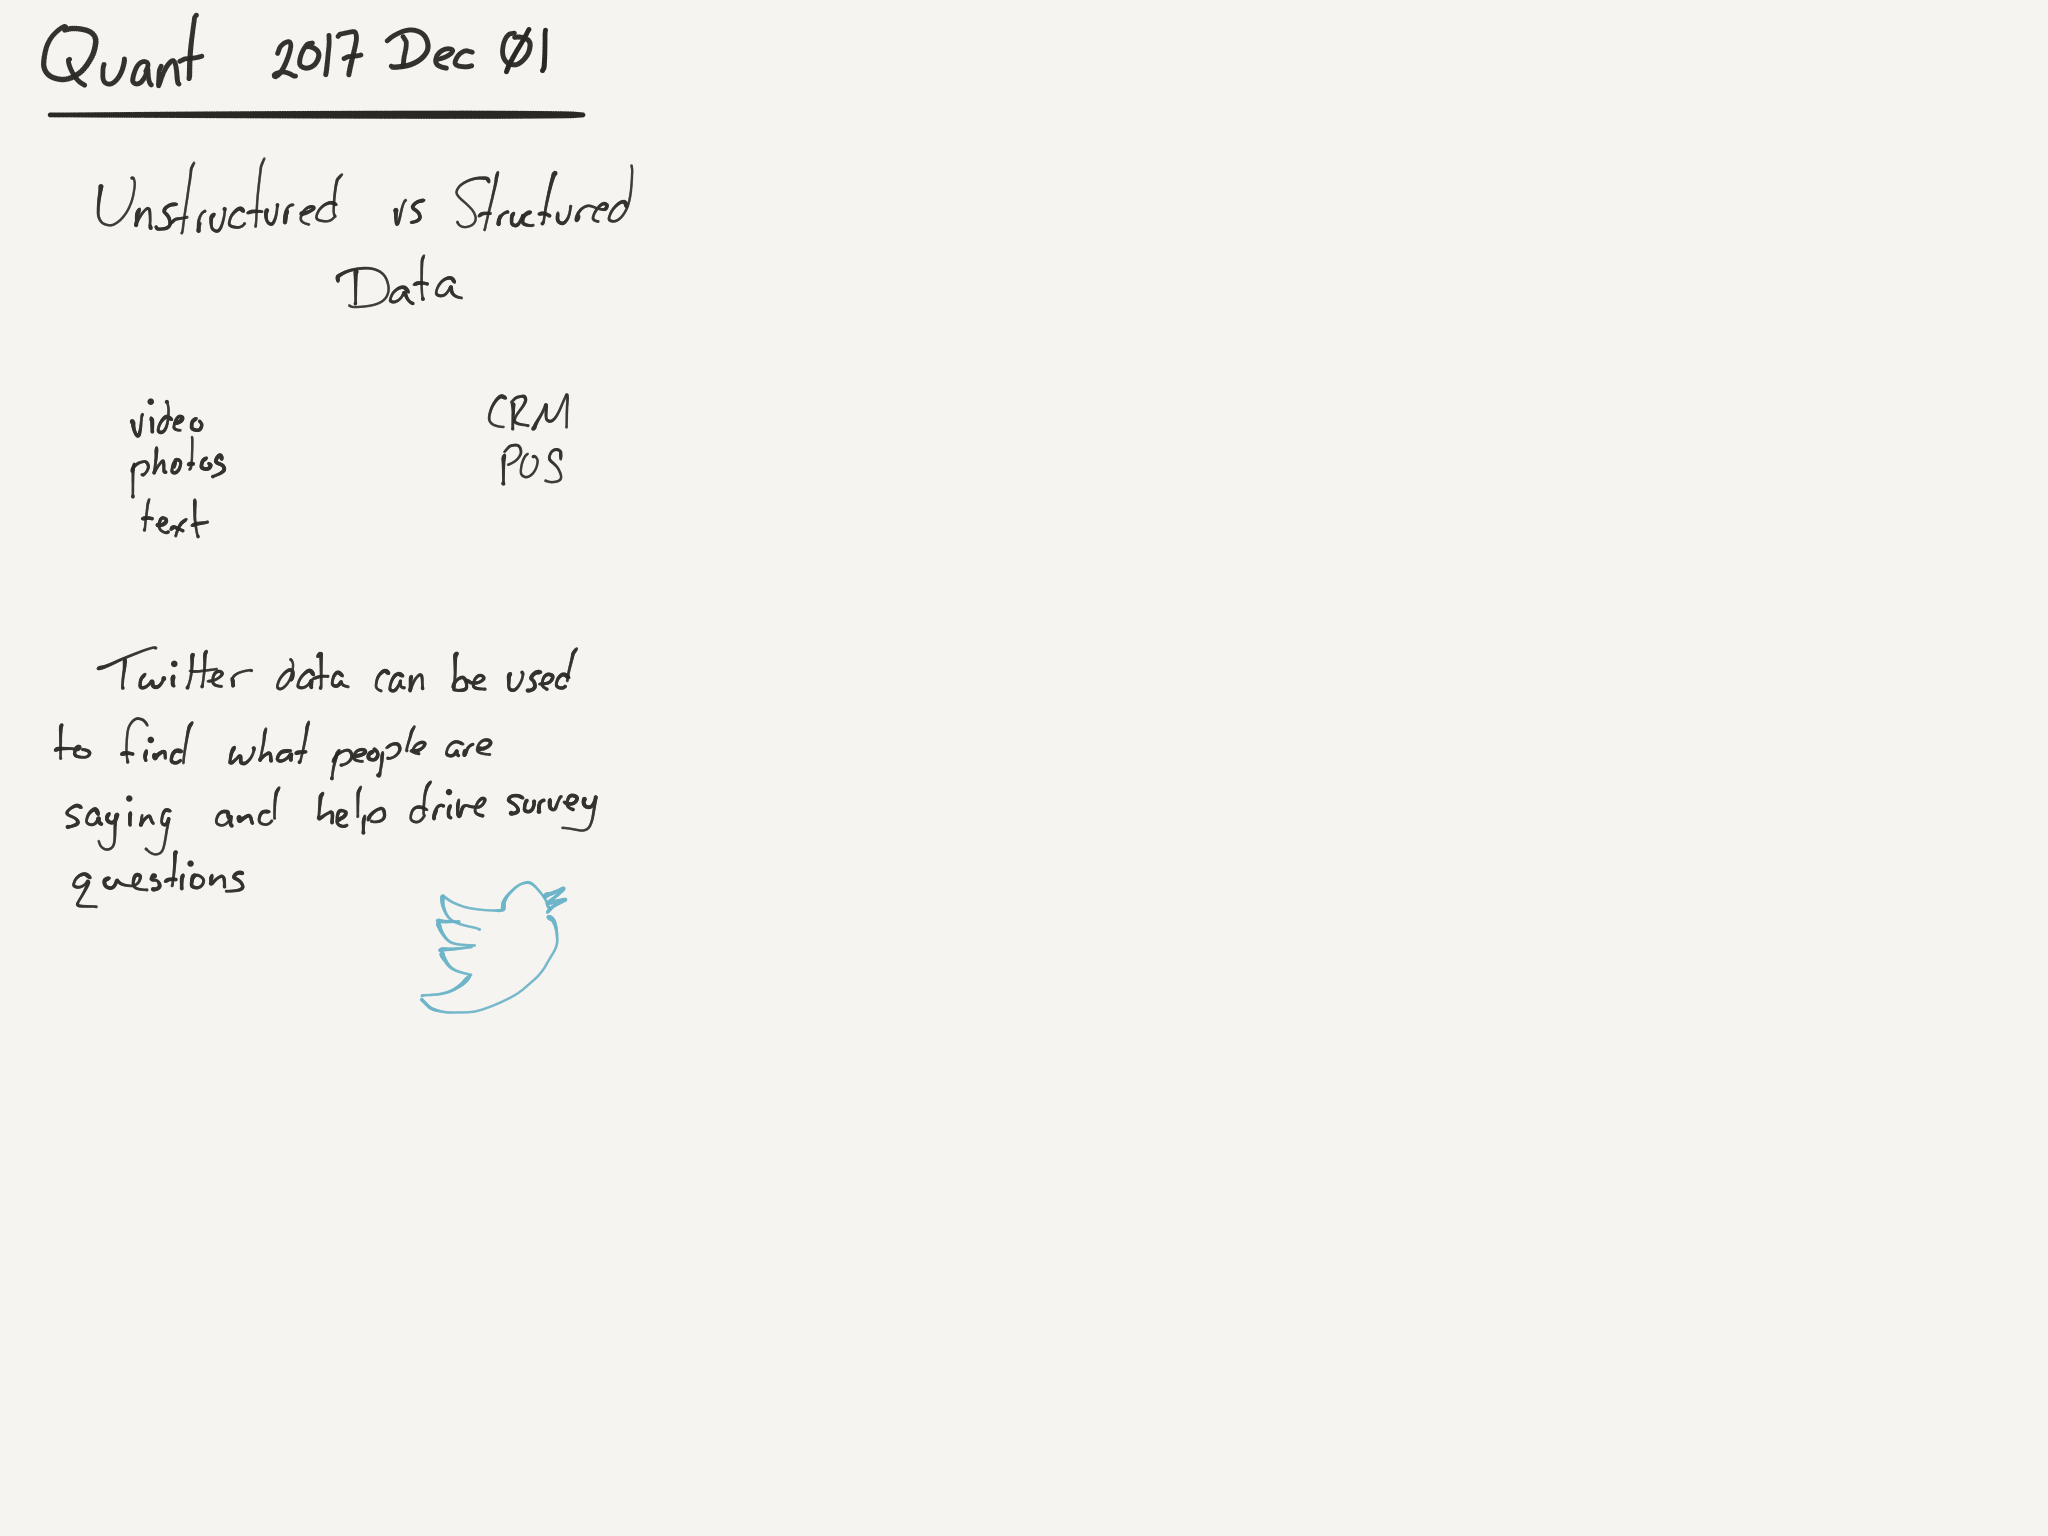 Quant 2017 Dec 01
Unstructured vs Structured
Data
video
photos
text
CRM
POS
Twitter data can be used
to find what people are
saying and help drive survey
questions